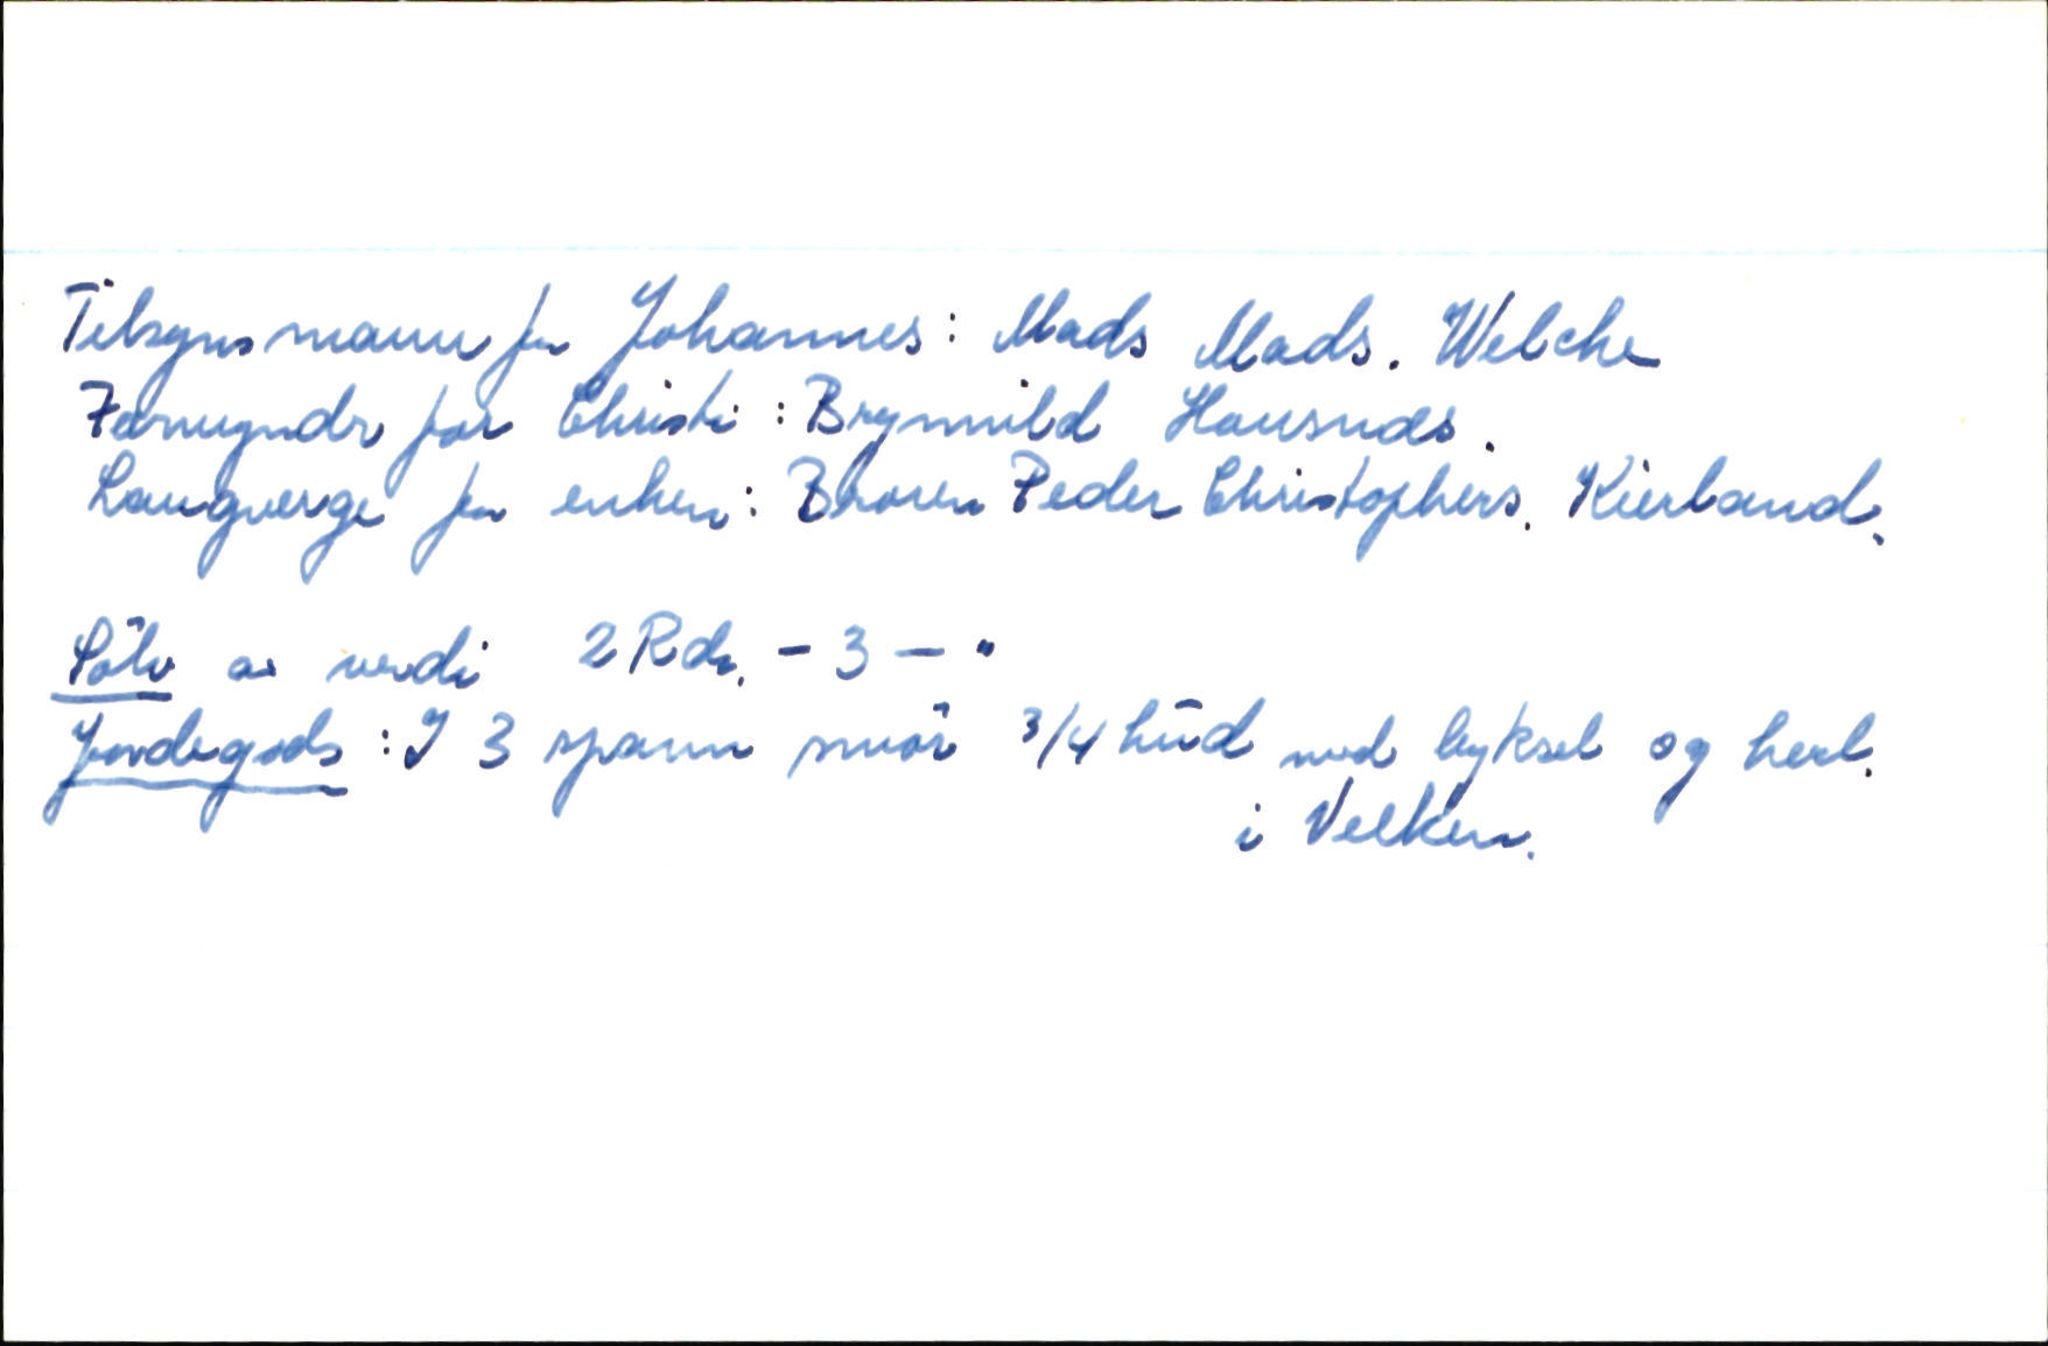 Tilsynsmann for Johannes: Mads Mads. Welche
Formyndr for Christi: Brynnild Hausnæs.
Laugverge for enken: Broren Peder Christophers. Kierland.
Sölv av verdi 2 Rdr. - 3 - "
Jordegods: I 3 spann smör 3/4 hud med byksel og herl.
i Velken.